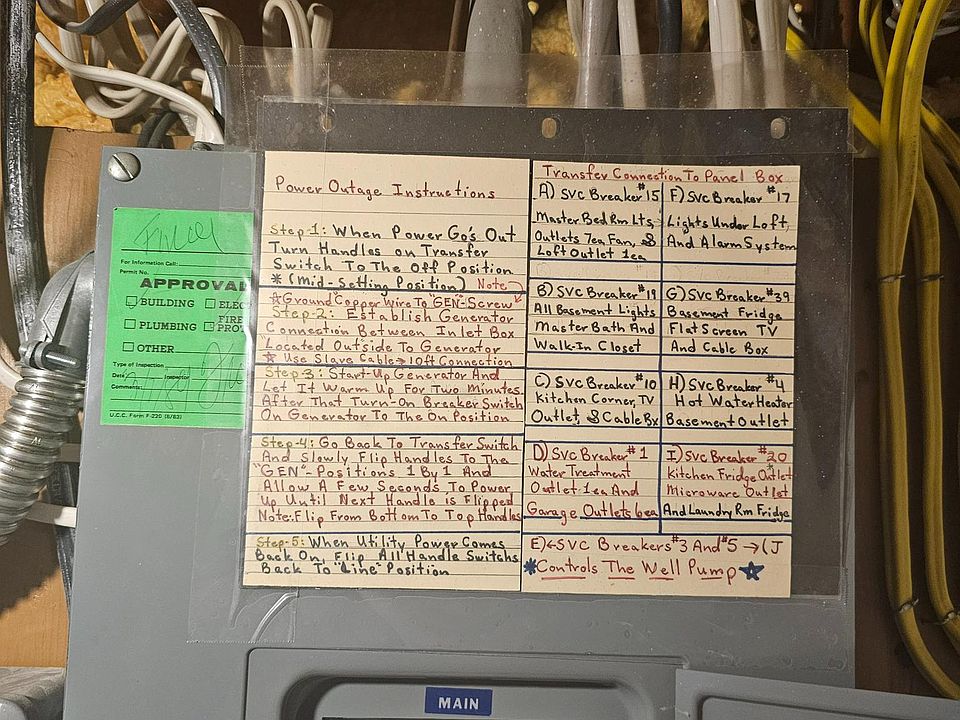 Final
For Information Call:
Permit No.
APPROVAL
BUILDING ELEC
PLUMBING FIRE PRO
OTHER
Type of Inspection
Date Inspector
Comments:
U.C.C. Form F-220 (8/83)
Power Outage Instructions
Step-1: When Power Go's Out
Turn Handles on Transfer
Switch To The Off Position
* (Mid-Setting Position) Note
☆Ground Copper Wire To "GEN"-Screw
Step-2: Establish Generator
Connection Between Inlet Box
Located Outside To Generator
☆ Use Slave Cable → 10ft Connection
Step-3: Start-Up Generator And
Let It Warm Up For Two Minutes.
After That Turn-On Breaker Switch
On Generator To The On Position
Step-4: Go Back To Transfer Switch
And Slowly Flip Handles To The
"GEN"-Positions 1 By 1 And
Allow A Few Seconds To Power
Up Until Next Handle is Flipped
Note: Flip From Bottom To Top Handles
Step-5: When Utility Power Comes
Back On, Flip All Handle Switchs
Back To "Line" Position
Transfer Connection To Panel Box
A) SVC Breaker #15
Master Bed Rm Lts,
Outlets 7ea Fan, &
Loft Outlet 1ea
F) SVC Breaker #17
Lights Under Loft,
And Alarm System
B) SVC Breaker #19
All Basement Lights
Master Bath And
Walk-In Closet
G) SVC Breaker #39
Basement Fridge
Flat Screen TV
And Cable Box
C) SVC Breaker #10
Kitchen Corner, TV
Outlet, & Cable Bx
H) SVC Breaker #4
Hot Water Heater
Basement Outlet
D) SVC Breaker #1
Water Treatment
Outlet 1ea And
Garage Outlets 6ea
I) SVC Breaker #20
Kitchen Fridge Outlet
Microware Outlet
And Laundry Rm Fridge
E) ← SVC Breakers #3 And #5 → (J
*Controls The Well Pump ★
MAIN